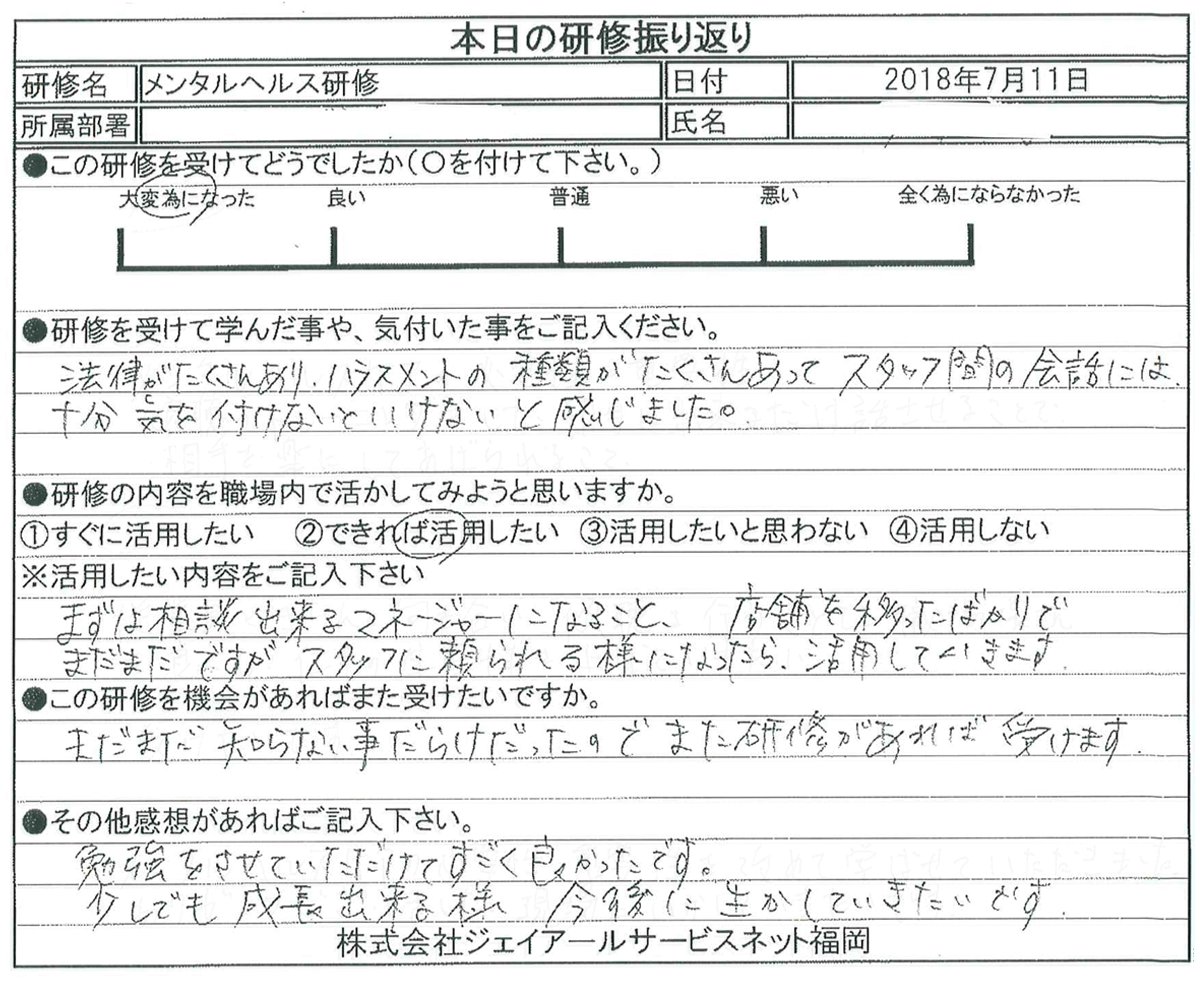 本日の研修振り返り
研修名 メンタルヘルス研修 日付 2018年7月11日
所属部署 氏名
●この研修を受けてどうでしたか(〇を付けて下さい。)
大変為になった 良い 普通 悪い 全く為にならなかった
●研修を受けて学んだ事や、気付いた事をご記入ください。
法律がたくさんあり、ハラスメントの種類がたくさんあってスタッフ間の会話には、
十分気を付けないといけないと感じました。
●研修の内容を職場内で活かしてみようと思いますか。
①すぐに活用したい ②できれば活用したい ③活用したいと思わない ④活用しない
※活用したい内容をご記入下さい
まずは相談出来るマネージャーになること、店舗を移ったばかりで
まだまだですがスタッフに頼られる様になったら、活用していきます。
●この研修を機会があればまた受けたいですか。
まだまだ知らない事だらけだったのでまた研修があれば受けます。
●その他感想があればご記入下さい。
勉強をさせていただけてすごく良かったです。
少しでも成長出来る様、今後に生かしていきたいです。
株式会社ジェイアールサービスネット福岡